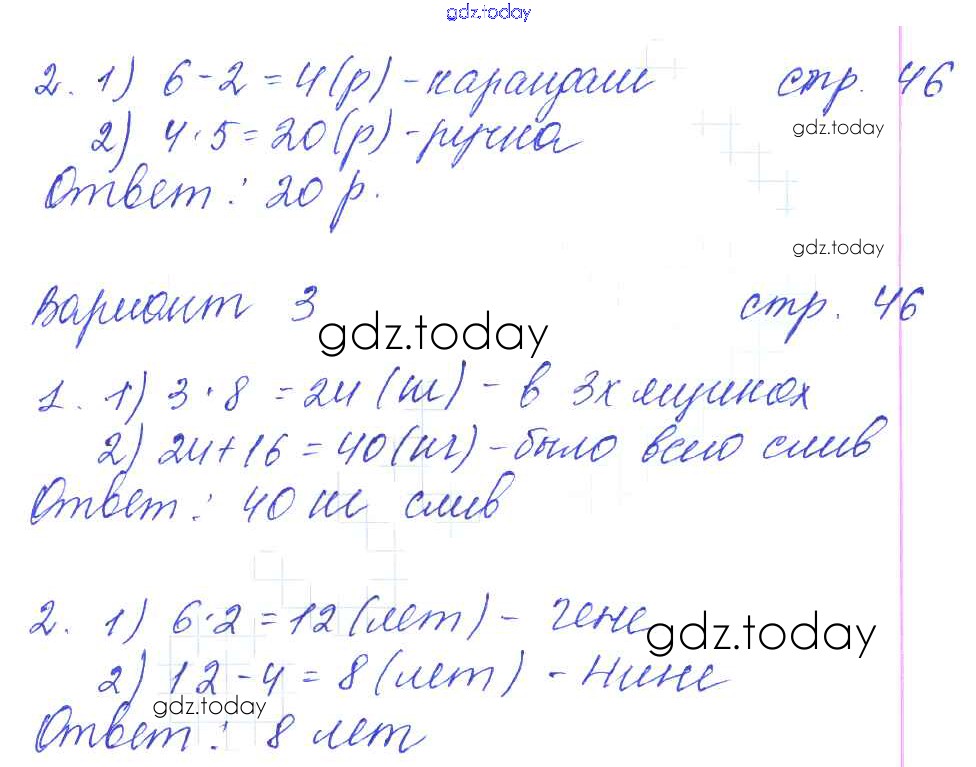 gdz.today
2. 1) 6 - 2 = 4 (р) - карандаш стр. 46
gdz.today
2) 4 · 5 = 20 (р) - ручка
Ответ: 20 р.
gdz.today
Вариант 3 стр. 46
gdz.today
1. 1) 3 · 8 = 24 (кг) - в 3х ящиках
2) 24 + 16 = 40 (кг) - было всего слив
Ответ: 40 кг слив
2. 1) 6 · 2 = 12 (лет) - Гене
gdz.today
2) 12 - 4 = 8 (лет) - Нине
gdz.today
Ответ: 8 лет